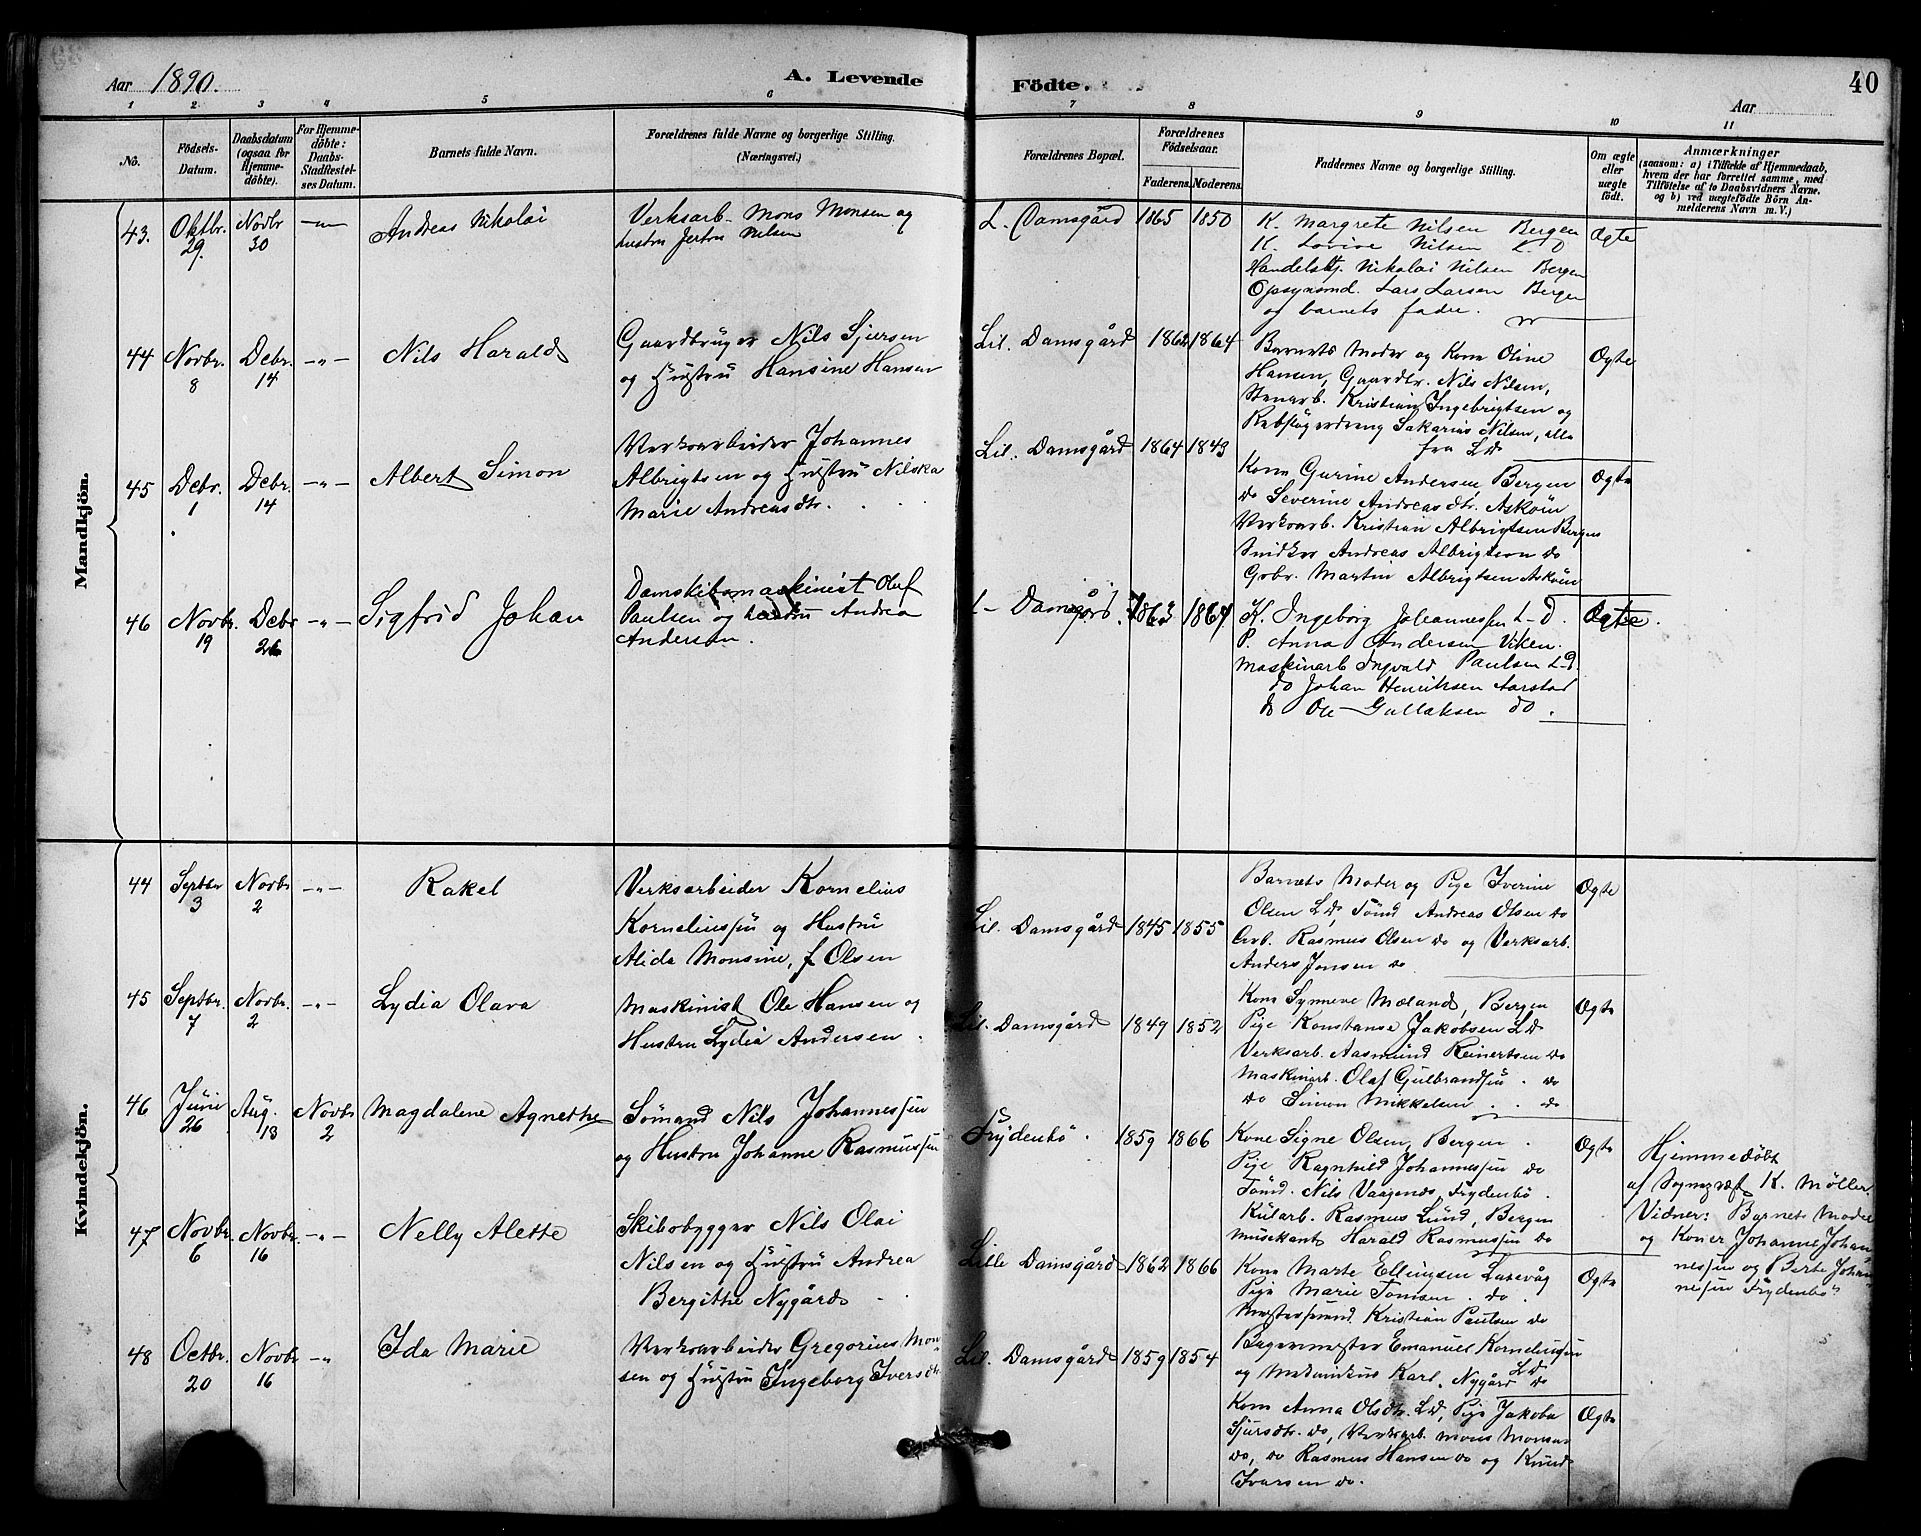 Aar 1890.
A. Levende Födte.
40
Aar
1 2 3 4 5 6 7 8 9 10 11
No.
Födsels-Datum.
Daabsdatum (ogsaa for Hjemme-döbte).
For Hjemme-döbte: Daabs-Stadfestel-ses Datum.
Barnets fulde Navn.
Forældrenes fulde Navne og borgerlige Stilling. (Næringsvei.)
Forældrenes Bopæl.
Forældrenes Födselsaar.
Faderens. Moderens.
Faddernes Navne og borgerlige Stilling.
Om ægte eller uægte födt.
Anmærkninger
(saasom: a) i Tilfælde af Hjemmedaab,
hvem der har forrettet samme, med
Tilföielse af to Daabsvidners Navne.
og b) ved uægtefödte Börn An-
melderens Navn m.V.)
Mandkjön.
43. Oktbr. 29. Novbr 30 -"- Andreas Nikolai
Verksarb. Mons Monsen og
hustru Jertru Nilsen
L. Damsgård 1865 1850
K. Margrete Nilsen Bergen
K. Lovise Nilsen L D
Handelsbtj. Nikolai Nilsen Bergen
Opsynsmd. Lars Larsen Bergen
og barnets fader.
Ægte
44 Novbr. 8 Debr. 14 -"- Nils Harald
Gaardbruger Nils Sjursen
og Hustru Hansine Hansen
Lil. Damsgård 1862 1864
Barnets Moder og Kone Oline
Hansen, Gaardbr. Nils Nilsen,
Stenarb. Kristian Ingebrigtsen og
Rebslagerdreng Sakarias Nilsen, alle
fra LD
Ægte
45 Debr. 1 Debr. 14 -"- Albert Simon
Verksarbeider Johannes
Albrigtsen og Hustru Nilska
Marie Andreasdtr.
Lil. Damsgård 1864 1843
Kone Gurine Andersen, Bergen
do Severine Andreasdtr. Asköen
Verksarb. Kristian Albrigtsen Bergen
Snidker Andreas Albrigtsen do
Gbr. Martin Albrigtsen Asköen
Ægte
46 Novbr. 19 Debr 26 -"- Sigfrid Johan
Damskibsmaskinist Oluf
Paulsen og hustru Andrea
Andersen.
L- Damsgård. 1863 1864
K. Ingeborg Johannessen L-D.
P. Anna Andersen Viken.
Maskinarb Ingvald Paulsen L-D
do Johan Henriksen Aarstad
do Ole Gullaksen do.
Ægte.
Kvindekjön.
44 Septbr 3 Novbr 2 -"- Rakel
Verksarbeider Kornelius
Korneliussen og Hustru
Alida Monsine, f Olsen
Lil. Damsgård 1845 1855
Barnets Moder og Pige Iverine
Olsen LD, Tömd Andreas Olsen do
Arb. Rasmus Olsen do og Verksarb.
Anders Jonsen do
Ægte
45 Septbr. 7 Novbr. 2 -"- Lydia Olava
Maskinist Ole Hansen og
Hustru Lydia Andersen.
Lil. Damsgård 1849 1852
Kone Synneve Mæland, Bergen
Pige Konstanse Jakobsen LD
Verksarb. Aasmund Reinertsen do
Maskinarb. Olaf Gulbrandsen. do
do Simon Mikkelsen do
Ægte
46 Juni 26 Aug. 13 Novbr 2 Magdalene Agnethe
Sömand Nils Johannessen
og Hustru Johanne Rasmussen
Frydenbö. 1859 1866
Kone Signe Olsen, Bergen.
Pige Ragnhild Johannessen do
Tömd. Nils Vaagenes, Frydenbö.
Kularb. Rasmus Lund, Bergen
Musekant Harald Rasmussen do
Ægte
Hjemmedöbt
af Sognepræst K. Møller.
Vidner: Barnets Moder
og Koner Johanne Johan-
nessen og Berte Johan-
nessen Frydenbö
47 Novbr. 6 Novbr. 16 -"- Nelly Alette
Skibsbygger Nils Olai
Nilsen og Hustru Andrea
Bergithe Nygård
Lille Damsgård 1862 1866
Kone Marte Ellingsen Laxevåg
Pige Marie Tomsen do.
Mestersvend Kristian Paulsen do
Bagermester Emanuel Korneliussen LD
og Karl Nygård do
Ægte
48 Octbr. 20 Novbr 16 -"- Ida Marie
Verksarbeider Gregorius Mon-
sen og Hustru Ingeborg Iversdtr.
Lil. Damsgård 1859 1854
Kone Anna Olsdtr. LD, Pige Jakoba
Sjursdtr. do, Verksarb. Mons Monsen
do, do Rasmus Hansen do og Knud
Iversen do.
Ægte